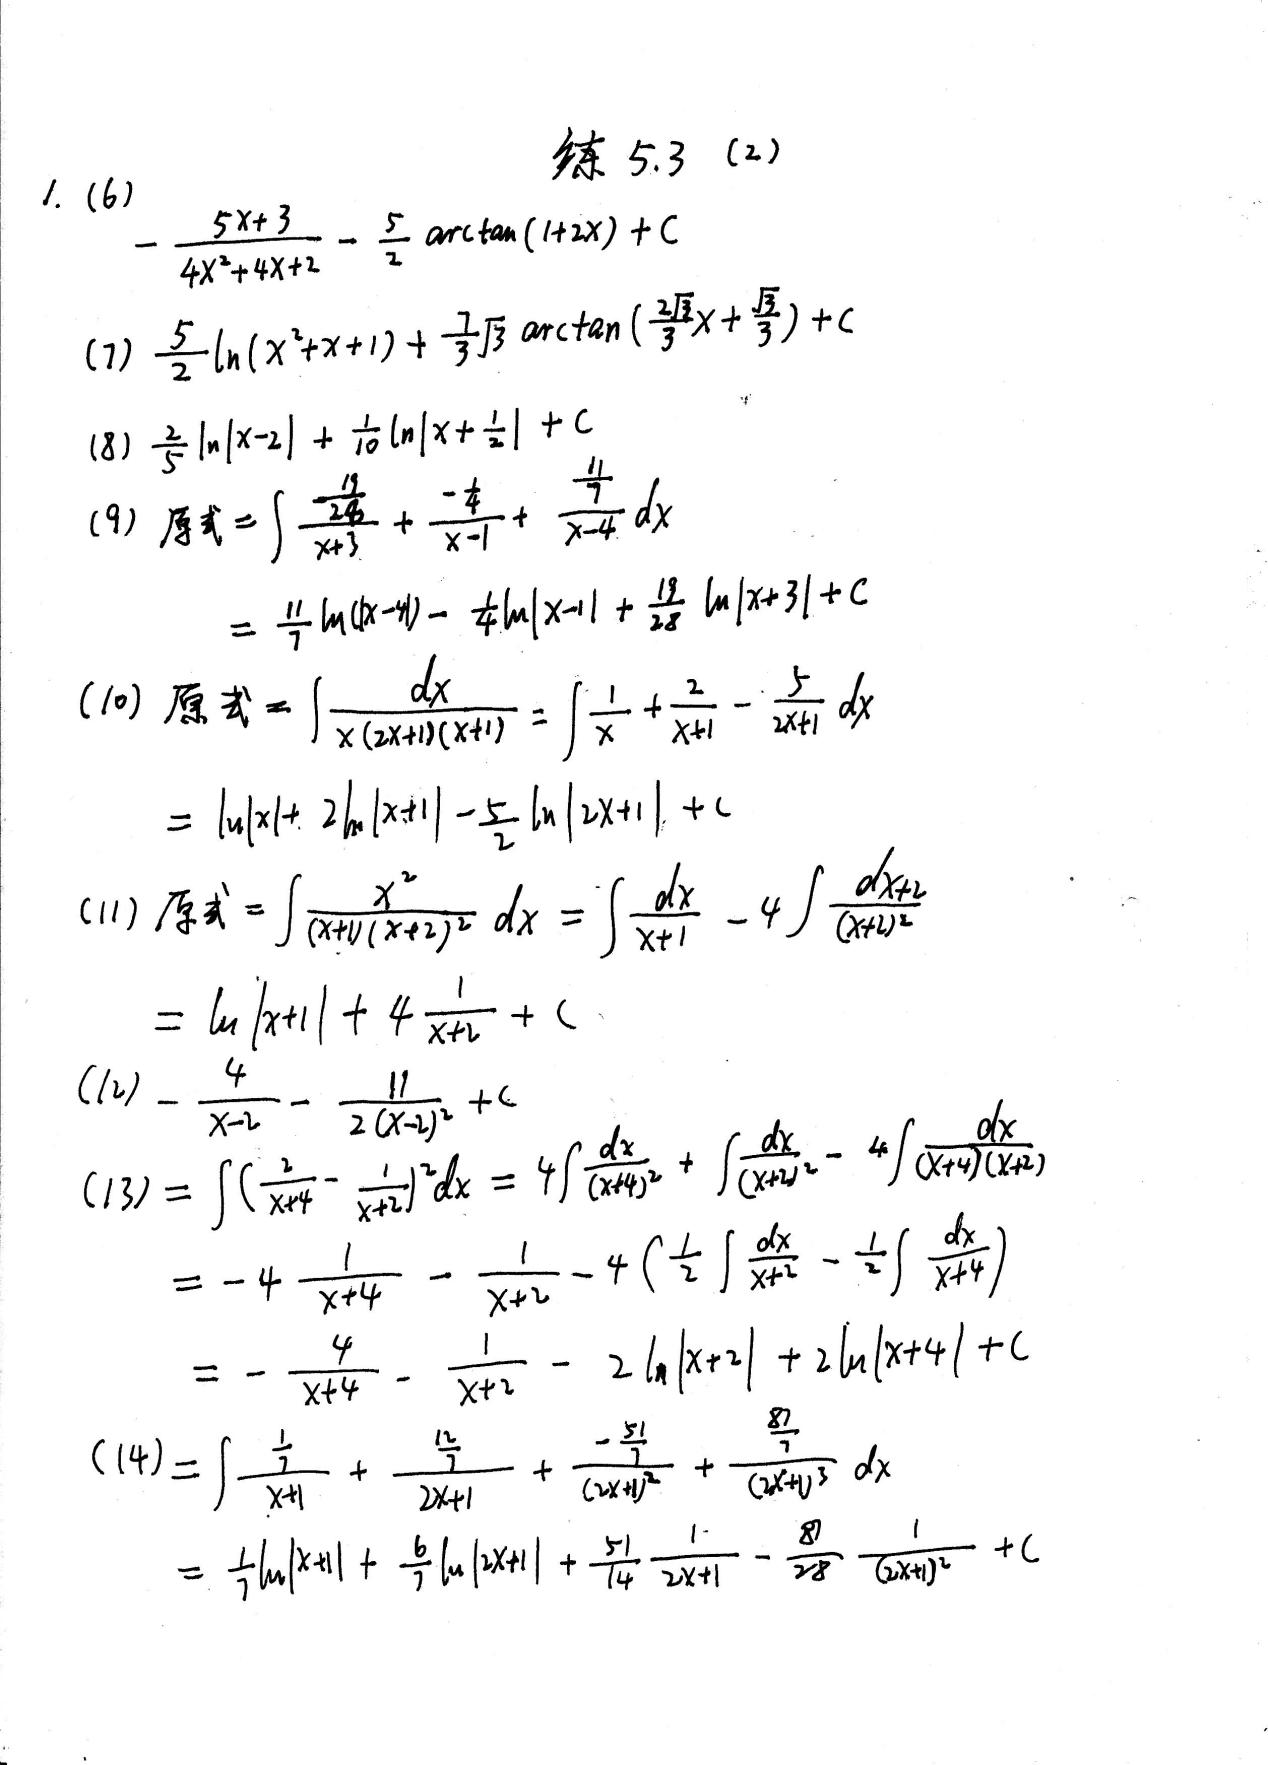 练 5.3 (2)
1. (6)
- \frac{5x+3}{4x^2+4x+2} - \frac{5}{2} arctan(1+2x) + C
(7) \frac{5}{2} ln(x^2+x+1) + \frac{7}{3}\sqrt{3} arctan(\frac{2\sqrt{3}}{3}x + \frac{\sqrt{3}}{3}) + C
(8) \frac{2}{5} ln|x-2| + \frac{1}{10} ln|x+\frac{1}{2}| + C
(9) 原式 = ∫ \frac{\frac{19}{28}}{x+3} + \frac{-\frac{1}{4}}{x-1} + \frac{\frac{11}{7}}{x-4} dx
= \frac{11}{7} ln(|x-4|) - \frac{1}{4} ln|x-1| + \frac{19}{28} ln|x+3| + C
(10) 原式 = ∫ \frac{dx}{x(2x+1)(x+1)} = ∫ \frac{1}{x} + \frac{2}{x+1} - \frac{5}{2x+1} dx
= ln|x| + 2ln|x+1| - \frac{5}{2} ln|2x+1| + C
(11) 原式 = ∫ \frac{x^2}{(x+1)(x+2)^2} dx = ∫ \frac{dx}{x+1} - 4∫ \frac{dx+2}{(x+2)^2}
= ln|x+1| + 4 \frac{1}{x+2} + C
(12) - \frac{4}{x-2} - \frac{11}{2(x-2)^2} + C
(13) = ∫ (\frac{2}{x+4} - \frac{1}{x+2})^2 dx = 4∫ \frac{dx}{(x+4)^2} + ∫ \frac{dx}{(x+2)^2} - 4∫ \frac{dx}{(x+4)(x+2)}
= -4 \frac{1}{x+4} - \frac{1}{x+2} - 4(\frac{1}{2} ∫ \frac{dx}{x+2} - \frac{1}{2} ∫ \frac{dx}{x+4})
= - \frac{4}{x+4} - \frac{1}{x+2} - 2 ln|x+2| + 2 ln|x+4| + C
(14) = ∫ \frac{\frac{1}{7}}{x+1} + \frac{\frac{12}{7}}{2x+1} + \frac{-\frac{51}{7}}{(2x+1)^2} + \frac{\frac{87}{7}}{(2x+1)^3} dx
= \frac{1}{7} ln|x+1| + \frac{6}{7} ln|2x+1| + \frac{51}{14} \frac{1}{2x+1} - \frac{87}{28} \frac{1}{(2x+1)^2} + C